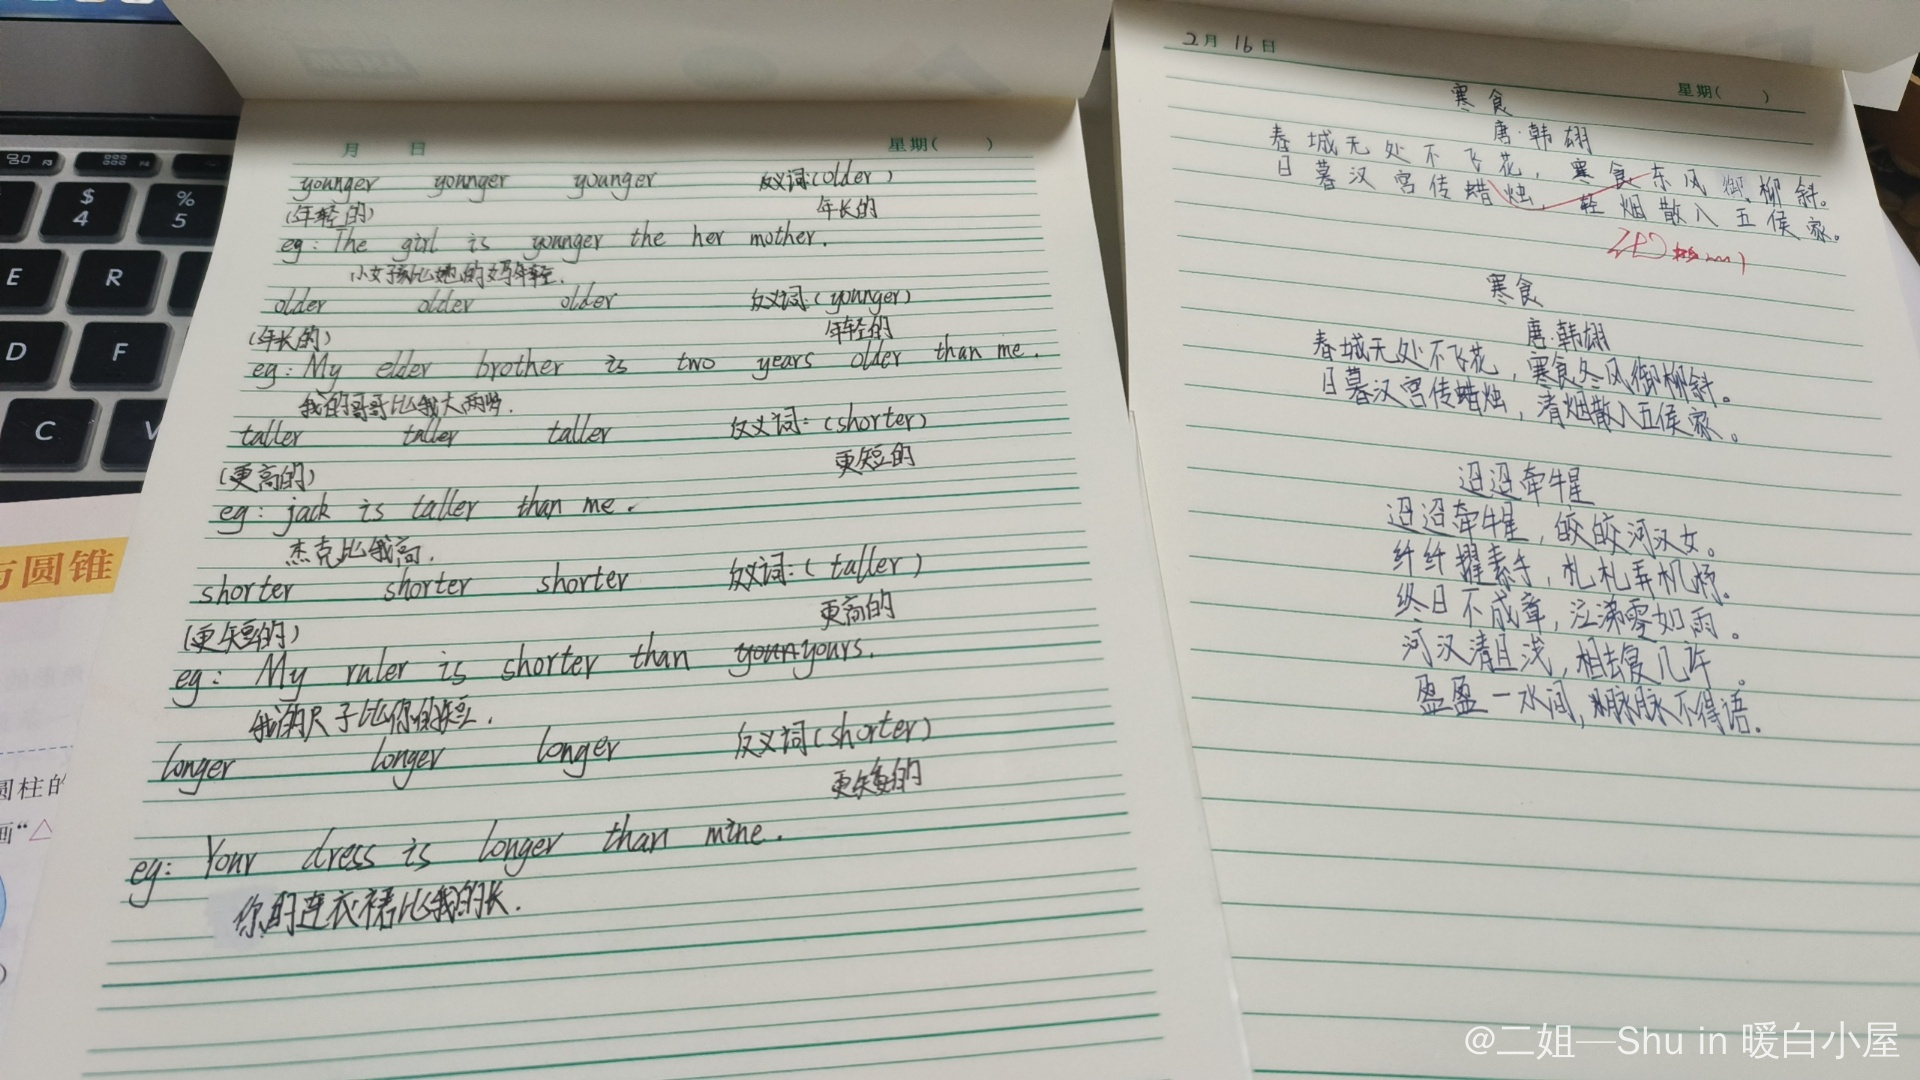 月 日 星期( )
younger younger younger 反义词:(older)
(年轻的) 年长的
eg: The girl is younger the her mother.
小女孩比她的妈年轻.
older older older 反义词:(younger)
(年长的) 年轻的
eg: My elder brother is two years older than me.
我的哥哥比我大两岁.
taller taller taller 反义词:(shorter)
(更高的) 更短的
eg: jack is taller than me.
杰克比我高.
shorter shorter shorter 反义词:(taller)
(更短的) 更高的
eg: My ruler is shorter than yours.
我的尺子比你的短.
longer longer longer 反义词(shorter)
更矮的
eg: Your dress is longer than mine.
你的连衣裙比我的长.
2月16日
星期( )
寒食
唐·韩翃
春城无处不飞花,寒食东风御柳斜。
日暮汉宫传蜡烛,轻烟散入五侯家。
寒食
唐·韩翃
春城无处不飞花,寒食冬风御柳斜。
日暮汉宫传蜡烛,清烟散入五侯家。
迢迢牵牛星
迢迢牵牛星,皎皎河汉女。
纤纤擢素手,札札弄机杼。
终日不成章,泣涕零如雨。
河汉清且浅,相去复几许。
盈盈一水间,脉脉不得语.
$ 4
% 5
E R
D F
C V
F3 F4
与圆锥
圆柱的
画“△
@二姐—Shu in 暖白小屋